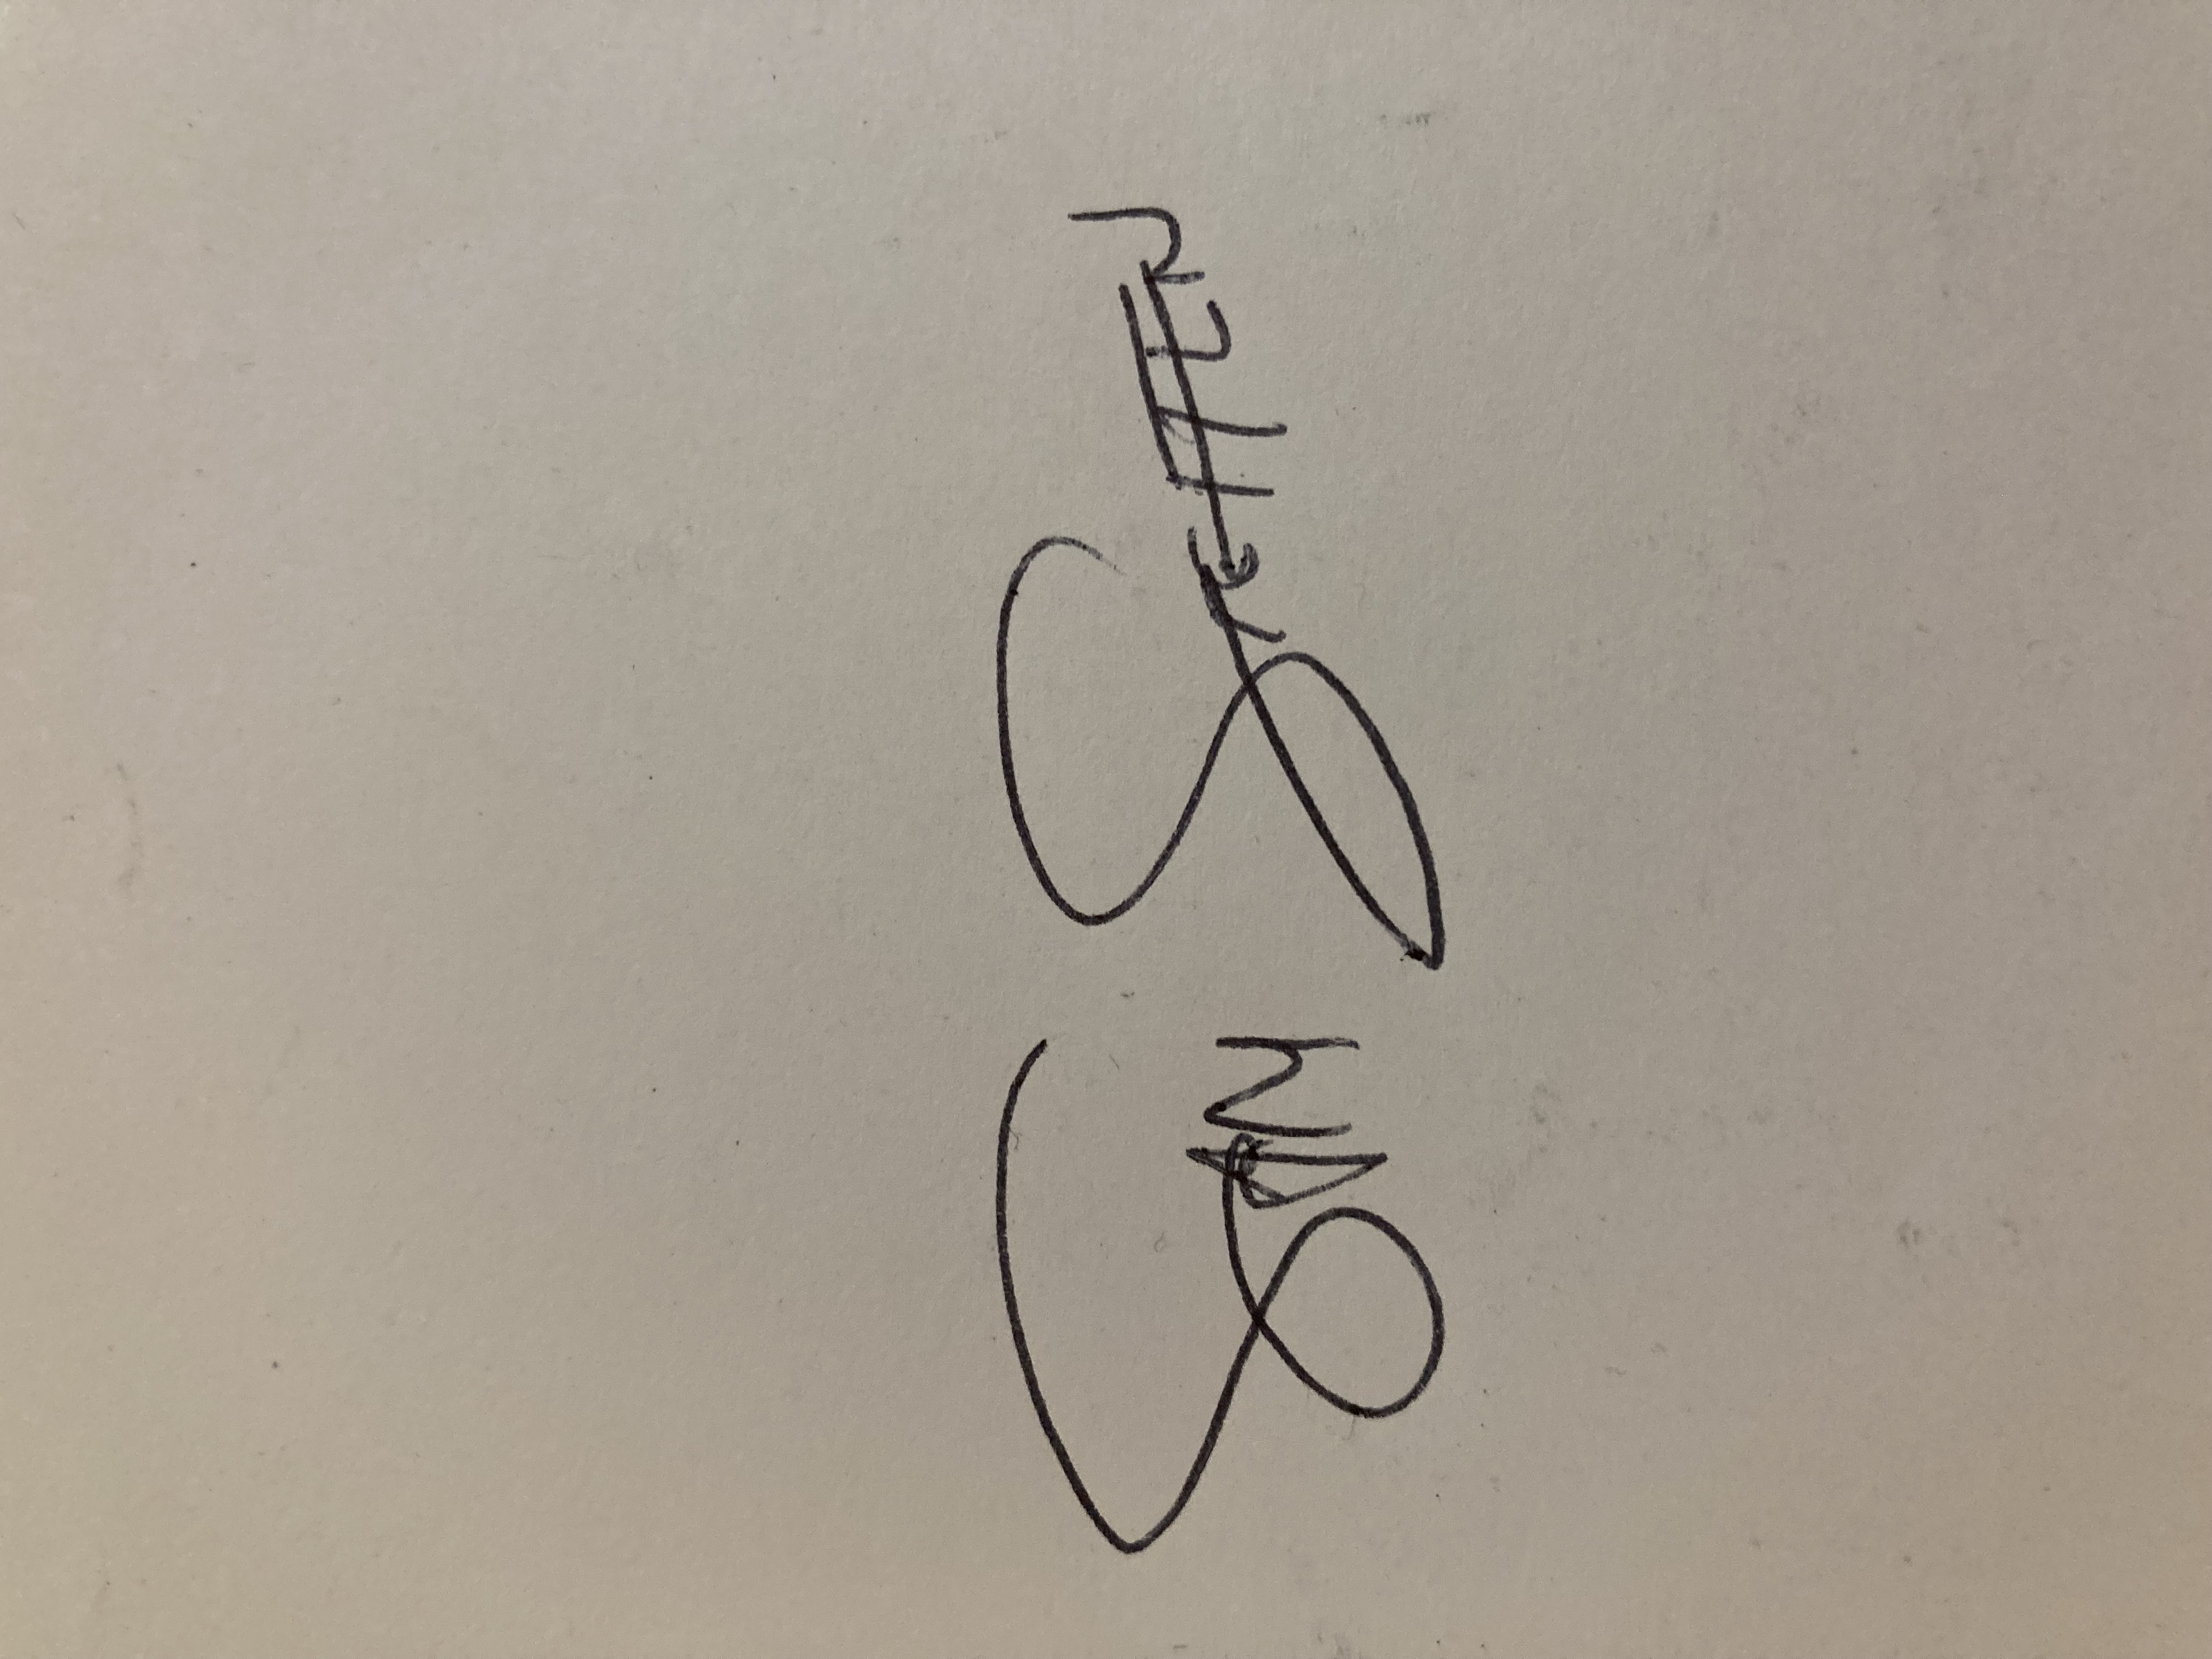 SAM STETTEN